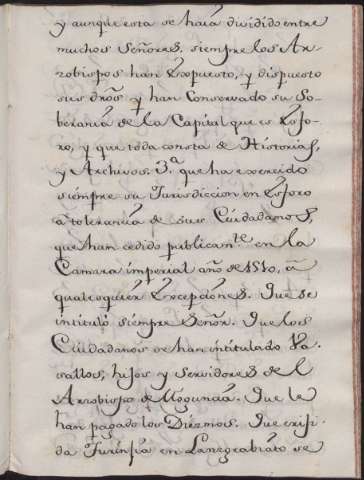 y aunque esta se havia dividido entre
muchos Señores, siempre los Ar-
zobispos han Expuesto, y dispuesto
sus drõs y han Conservado su So-
berania de la Capital que es Esfo-
ro, y que toda consta de Historias,
y Archivos. 3.ª que ha exercido
siempre su Jurisdiccion en Esforo
a tolerancia de sus Ciudadanos,
que han cedido publicam.te en la
Camara imperial año de 1510, â
qualesquier Excepciones. Que se
intituló siempre Señor. Que los
Ciudadanos se han intitulado Va
sallos, hijos y Servidores del
Arzobispo de Moguncia. Que le
han pagado los Diezmos. Que
da en Lanzgrabiato se